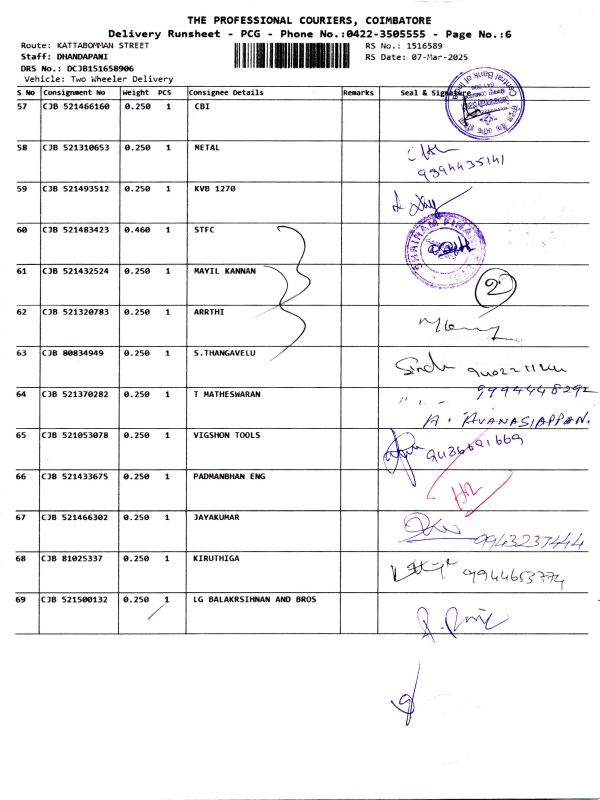 THE PROFESSIONAL COURIERS, COIMBATORE
Delivery Runsheet - PCG - Phone No.:0422-3505555 - Page No.:6
Route: KATTABOMMAN STREET RS No.: 1516589
Staff: DHANDAPANI RS Date: 07-Mar-2025
DRS No.: DCJB151658906
Vehicle: Two Wheeler Delivery
S No Consignment No Weight PCS Consignee Details Remarks Seal & Signature
Central Bank of India
57 CJB 521466160 0.250 1 CBI
58 CJB 521310653 0.250 1 METAL
9894435141
59 CJB 521493512 0.250 1 KVB 1270
60 CJB 521483423 0.460 1 STFC
SHRIRAM FINANCE
61 CJB 521432524 0.250 1 MAYIL KANNAN
2
62 CJB 521320783 0.250 1 ARRTHI
63 CJB 80834949 0.250 1 S.THANGAVELU
64 CJB 521370282 0.250 1 T MATHESWARAN 9994448292
A. AVANASIAPPAN.
65 CJB 521053078 0.250 1 VIGSHON TOOLS
66 CJB 521433675 0.250 1 PADMANBHAN ENG
67 CJB 521466302 0.250 1 JAYAKUMAR
9943237444
68 CJB 81025337 0.250 1 KIRUTHIGA 9944653774
69 CJB 521500132 0.250 1 LG BALAKRSIHNAN AND BROS